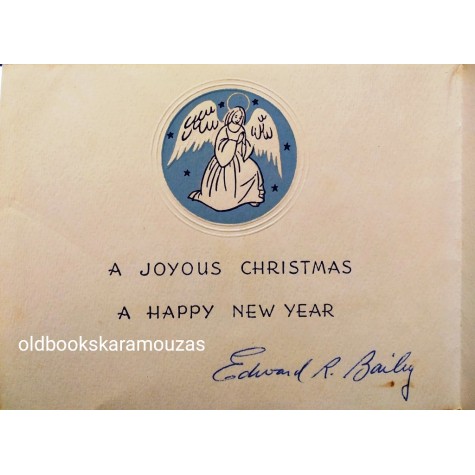 A JOYOUS CHRISTMAS
A HAPPY NEW YEAR
oldbookskaramouzas
Edward R. Baily